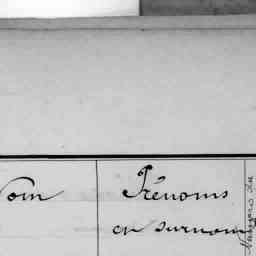 Nom
Prénoms
en surnom